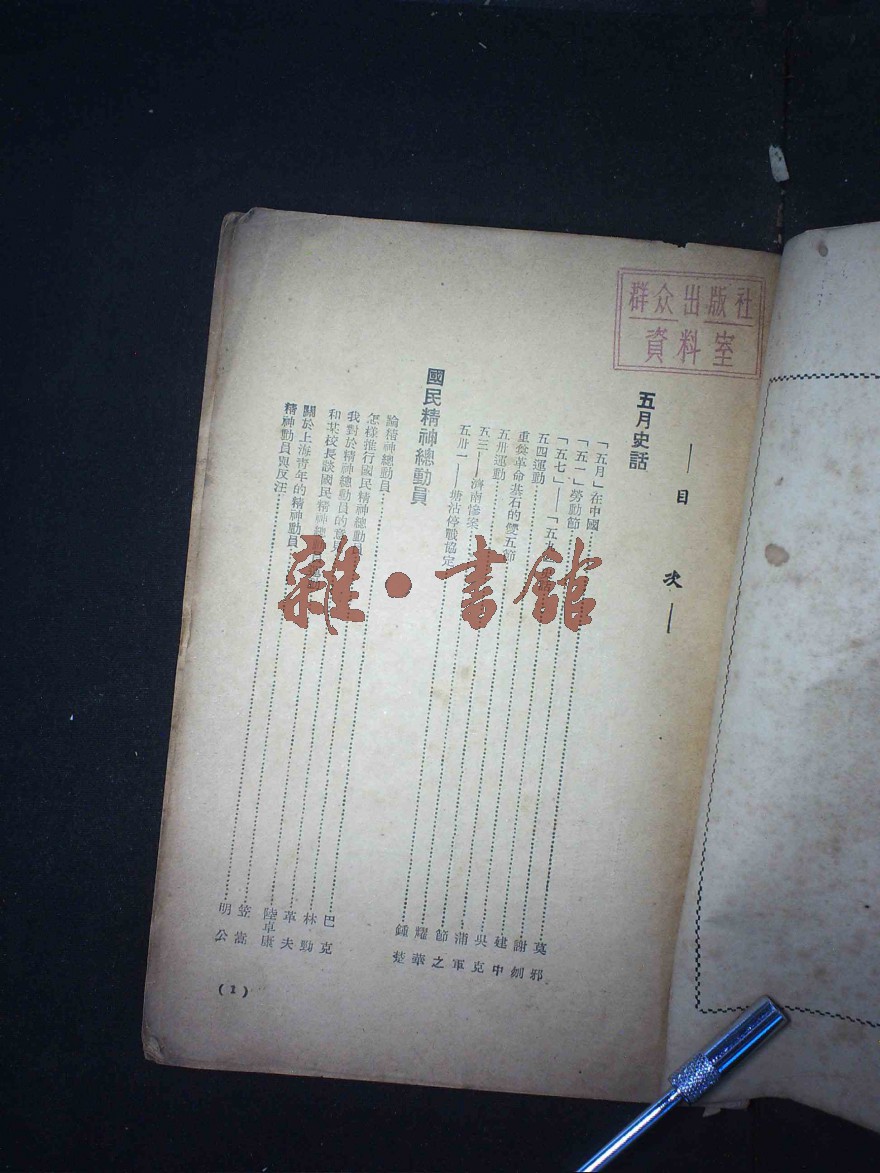 群众出版社
資料室
—目次—
五月史話
「五月」在中國 莫邪
「五一」勞動節 謝創
「五七」——「五九 建中
五四運動 吳克
重奠革命基石的雙五節 浦軍
五卅運動 節之
五三——濟南慘案 耀華
五卅一——塘沽停戰協定 鍾楚
國民精神總動員
論精神總動員 巴克
怎樣推行國民精神總動員 林勁
我對於精神總動員的意見 革夫
和某校長談國民精神總動員 陸卓康
關於上海青年的精神動員 笠嵩
精神動員與反汪 明公
(1)
雜·書館